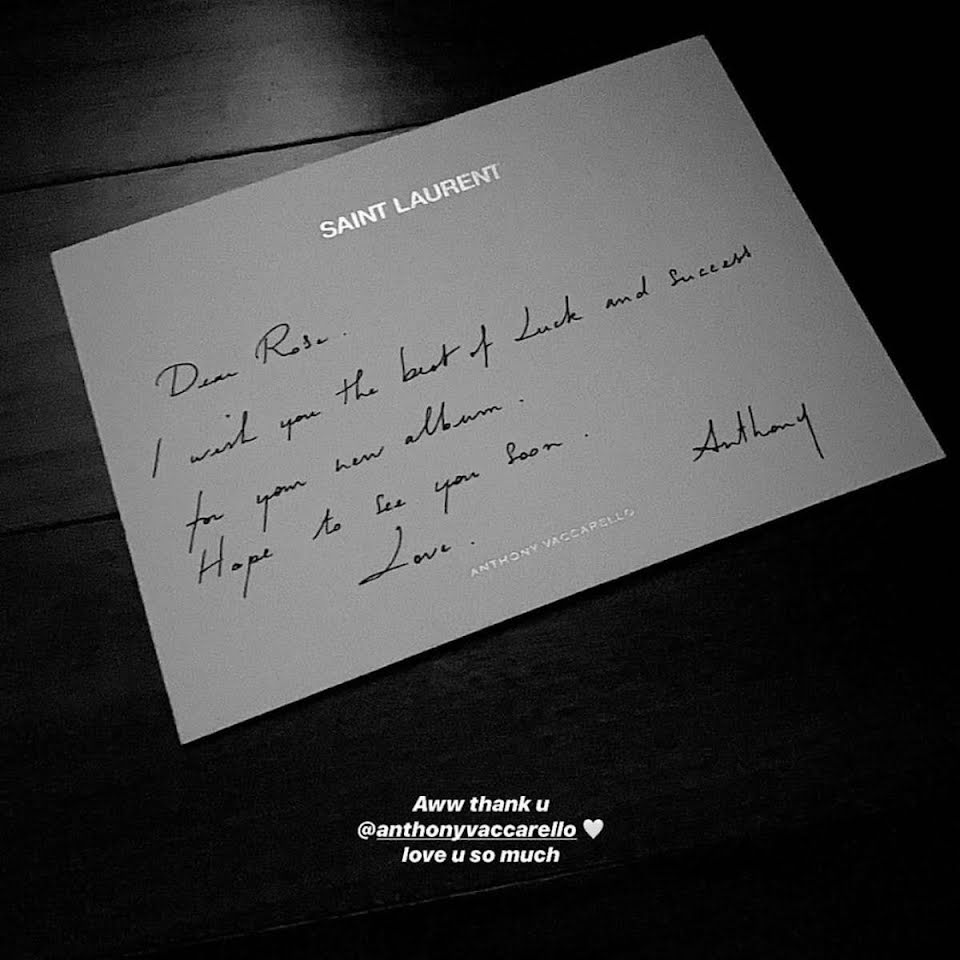 SAINT LAURENT
Dear Rose.
I wish you the best of Luck and success
for your new album.
Hope to see you soon.
Love.
Anthony
ANTHONY VACCARELLO
Aww thank u
@anthonyvaccarello 🤍
love u so much